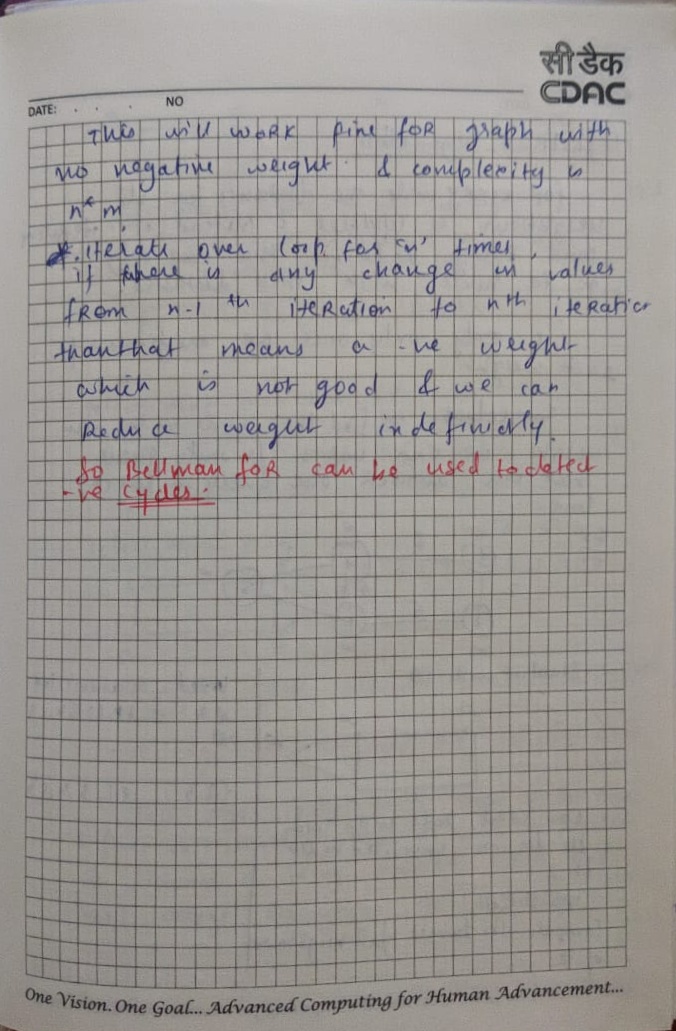 सी डैक
CDAC
DATE: . . . NO
This will work fine for graph with
no negative weight. & complexity is
n* m
*. iterate over loop for "n" times,
if there is any change in values
from n-1 th iteration to nth iteration
than that means a -ve weight
which is not good & we can
Reduce weight indefinietly.
So Bellman foR can be used to detect
-ve cycles.
One Vision. One Goal... Advanced Computing for Human Advancement...